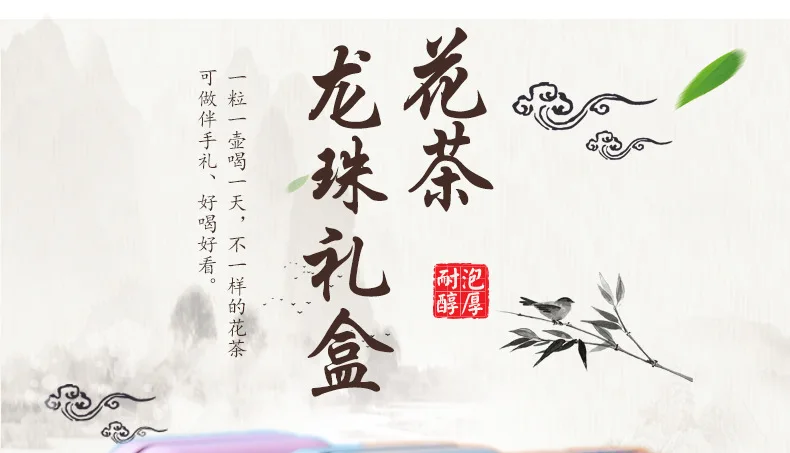 花茶
龙珠礼盒
泡厚
耐醇
一粒一壶喝一天，不一样的花茶
可做伴手礼、好喝好看。